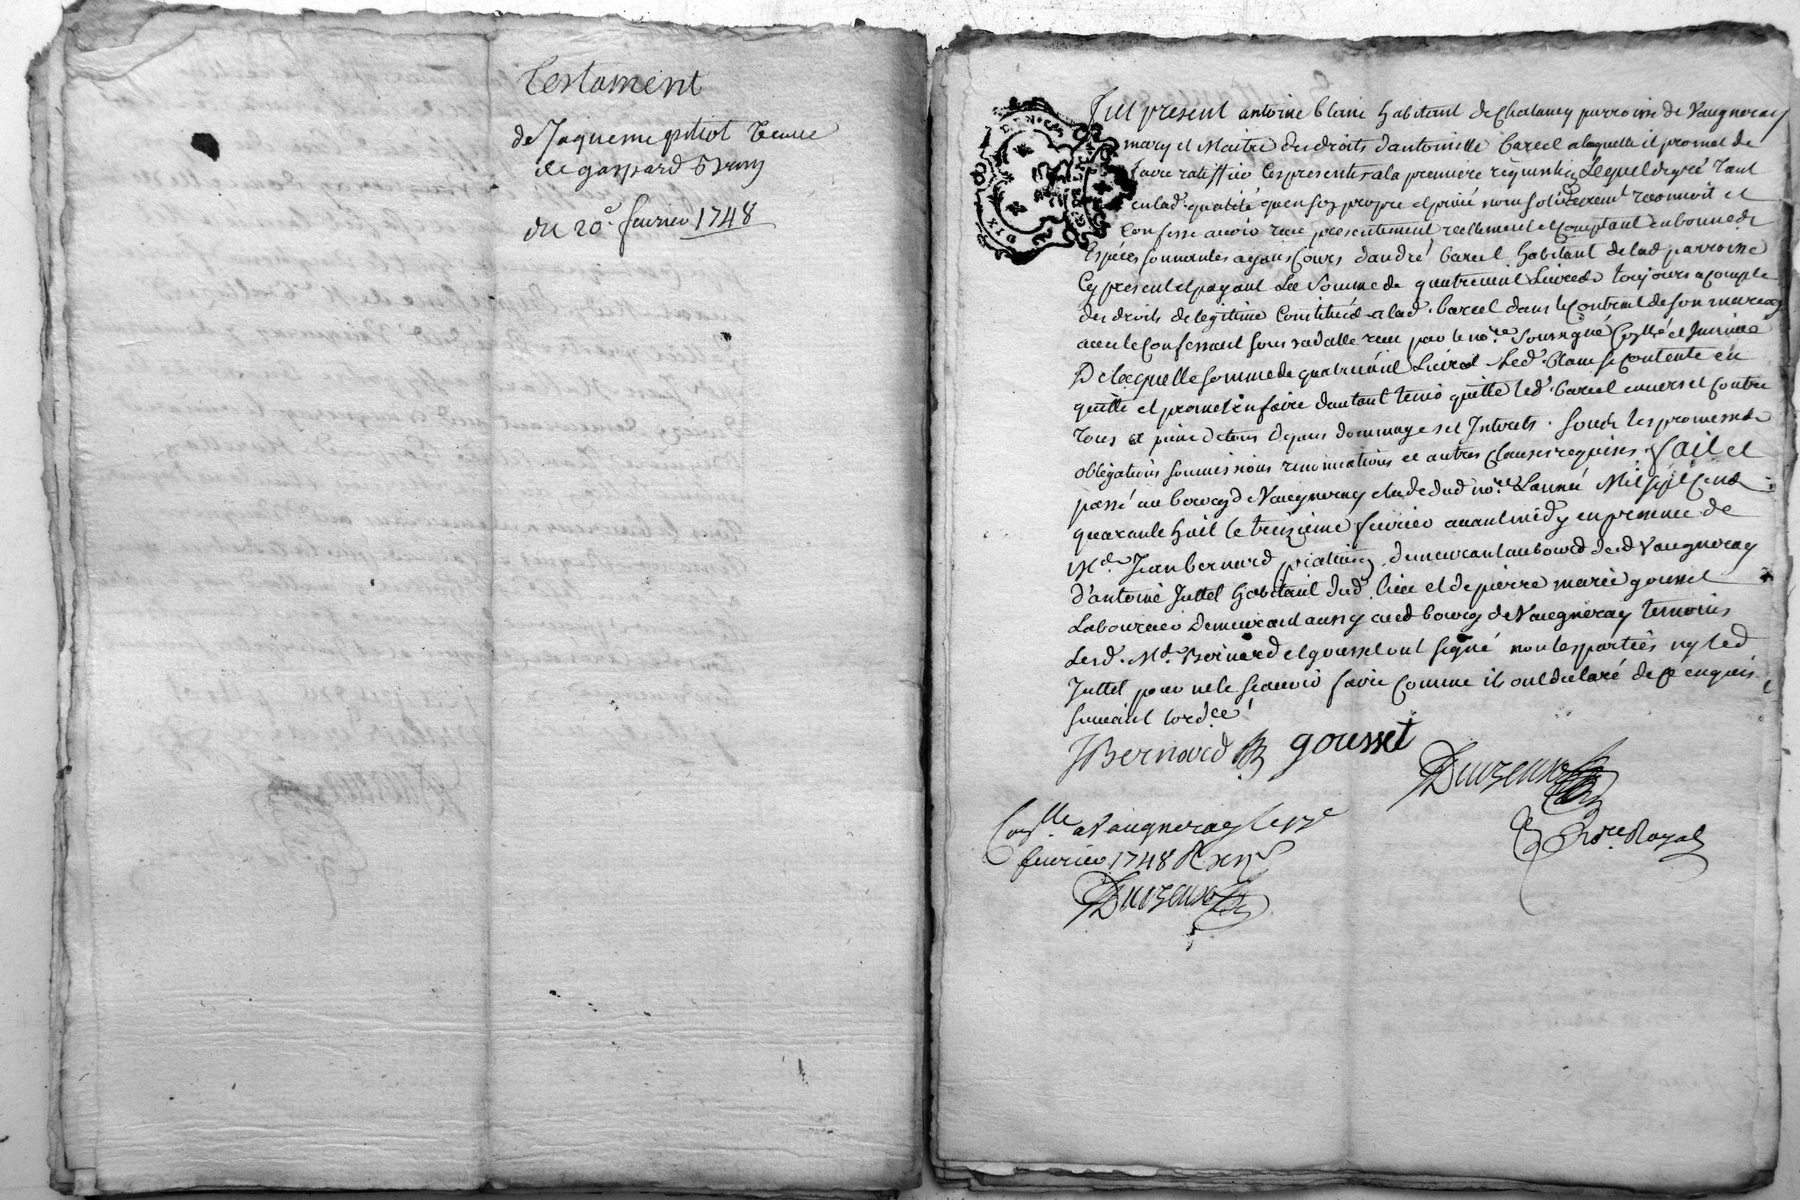 Testament
de Jaqueme pitiot veuve
de gaspard
du 20e fevrier 1748
Fut present antoine blanc habitant de Chalancy parroisse de Vaugneray
mary et Maitre des droits d'antoinette barcel a laquelle il promet de
faire ratiffier les presentes a la premiere requisition Lequel de gré tant
en lad. qualité qu'en son propre et privé nom solidairement reconnoit et
Confesse avoir receu presentement reellement et Comptant en bonnes
Espéces sonnantes ayans Cours d'andré barcel habitant de lad parroisse
Cy present et payant La Somme de quatre vint Livres toujours a compte
des droits de legitime Constitués a lad. barcel dans le Contrat de son mariage
avec le Confessant sous sa datte receu par le nore. Soussigné Conllé et Insinué
De laquelle somme de quatre vint Livres led. blanc se Contente en
quitte et promet en faire d'autant tenir quitte led. barcel envers et Contre
tous a peine de tous depans dommages et Interets. sous les promesses
obligations soumissions renonciations et autres Clauses requises. fait et
passé au bourg de Vaugneray etude dud nore. L'année Mil sept Cents
quarante huit le treizieme fevrier avant midy en presence de
Md. Jean bernard praticien demeurant au bourg dud Vaugneray
d'antoine Juttet habitant dud. lieu et de pierre marie gousset
Laboureur Demeurant aussy aud bourg de Vaugneray temoins
Lesd. Md. Bernard et gousset ont signé non les parties ny led
Juttet pour ne le sçavoir faire Comme ils ont declaré de ce enquis
suivant l'ordce
JBernard gousset
Nore. Royal
Conlle. a Vaugneray le
fevrier 1748 R